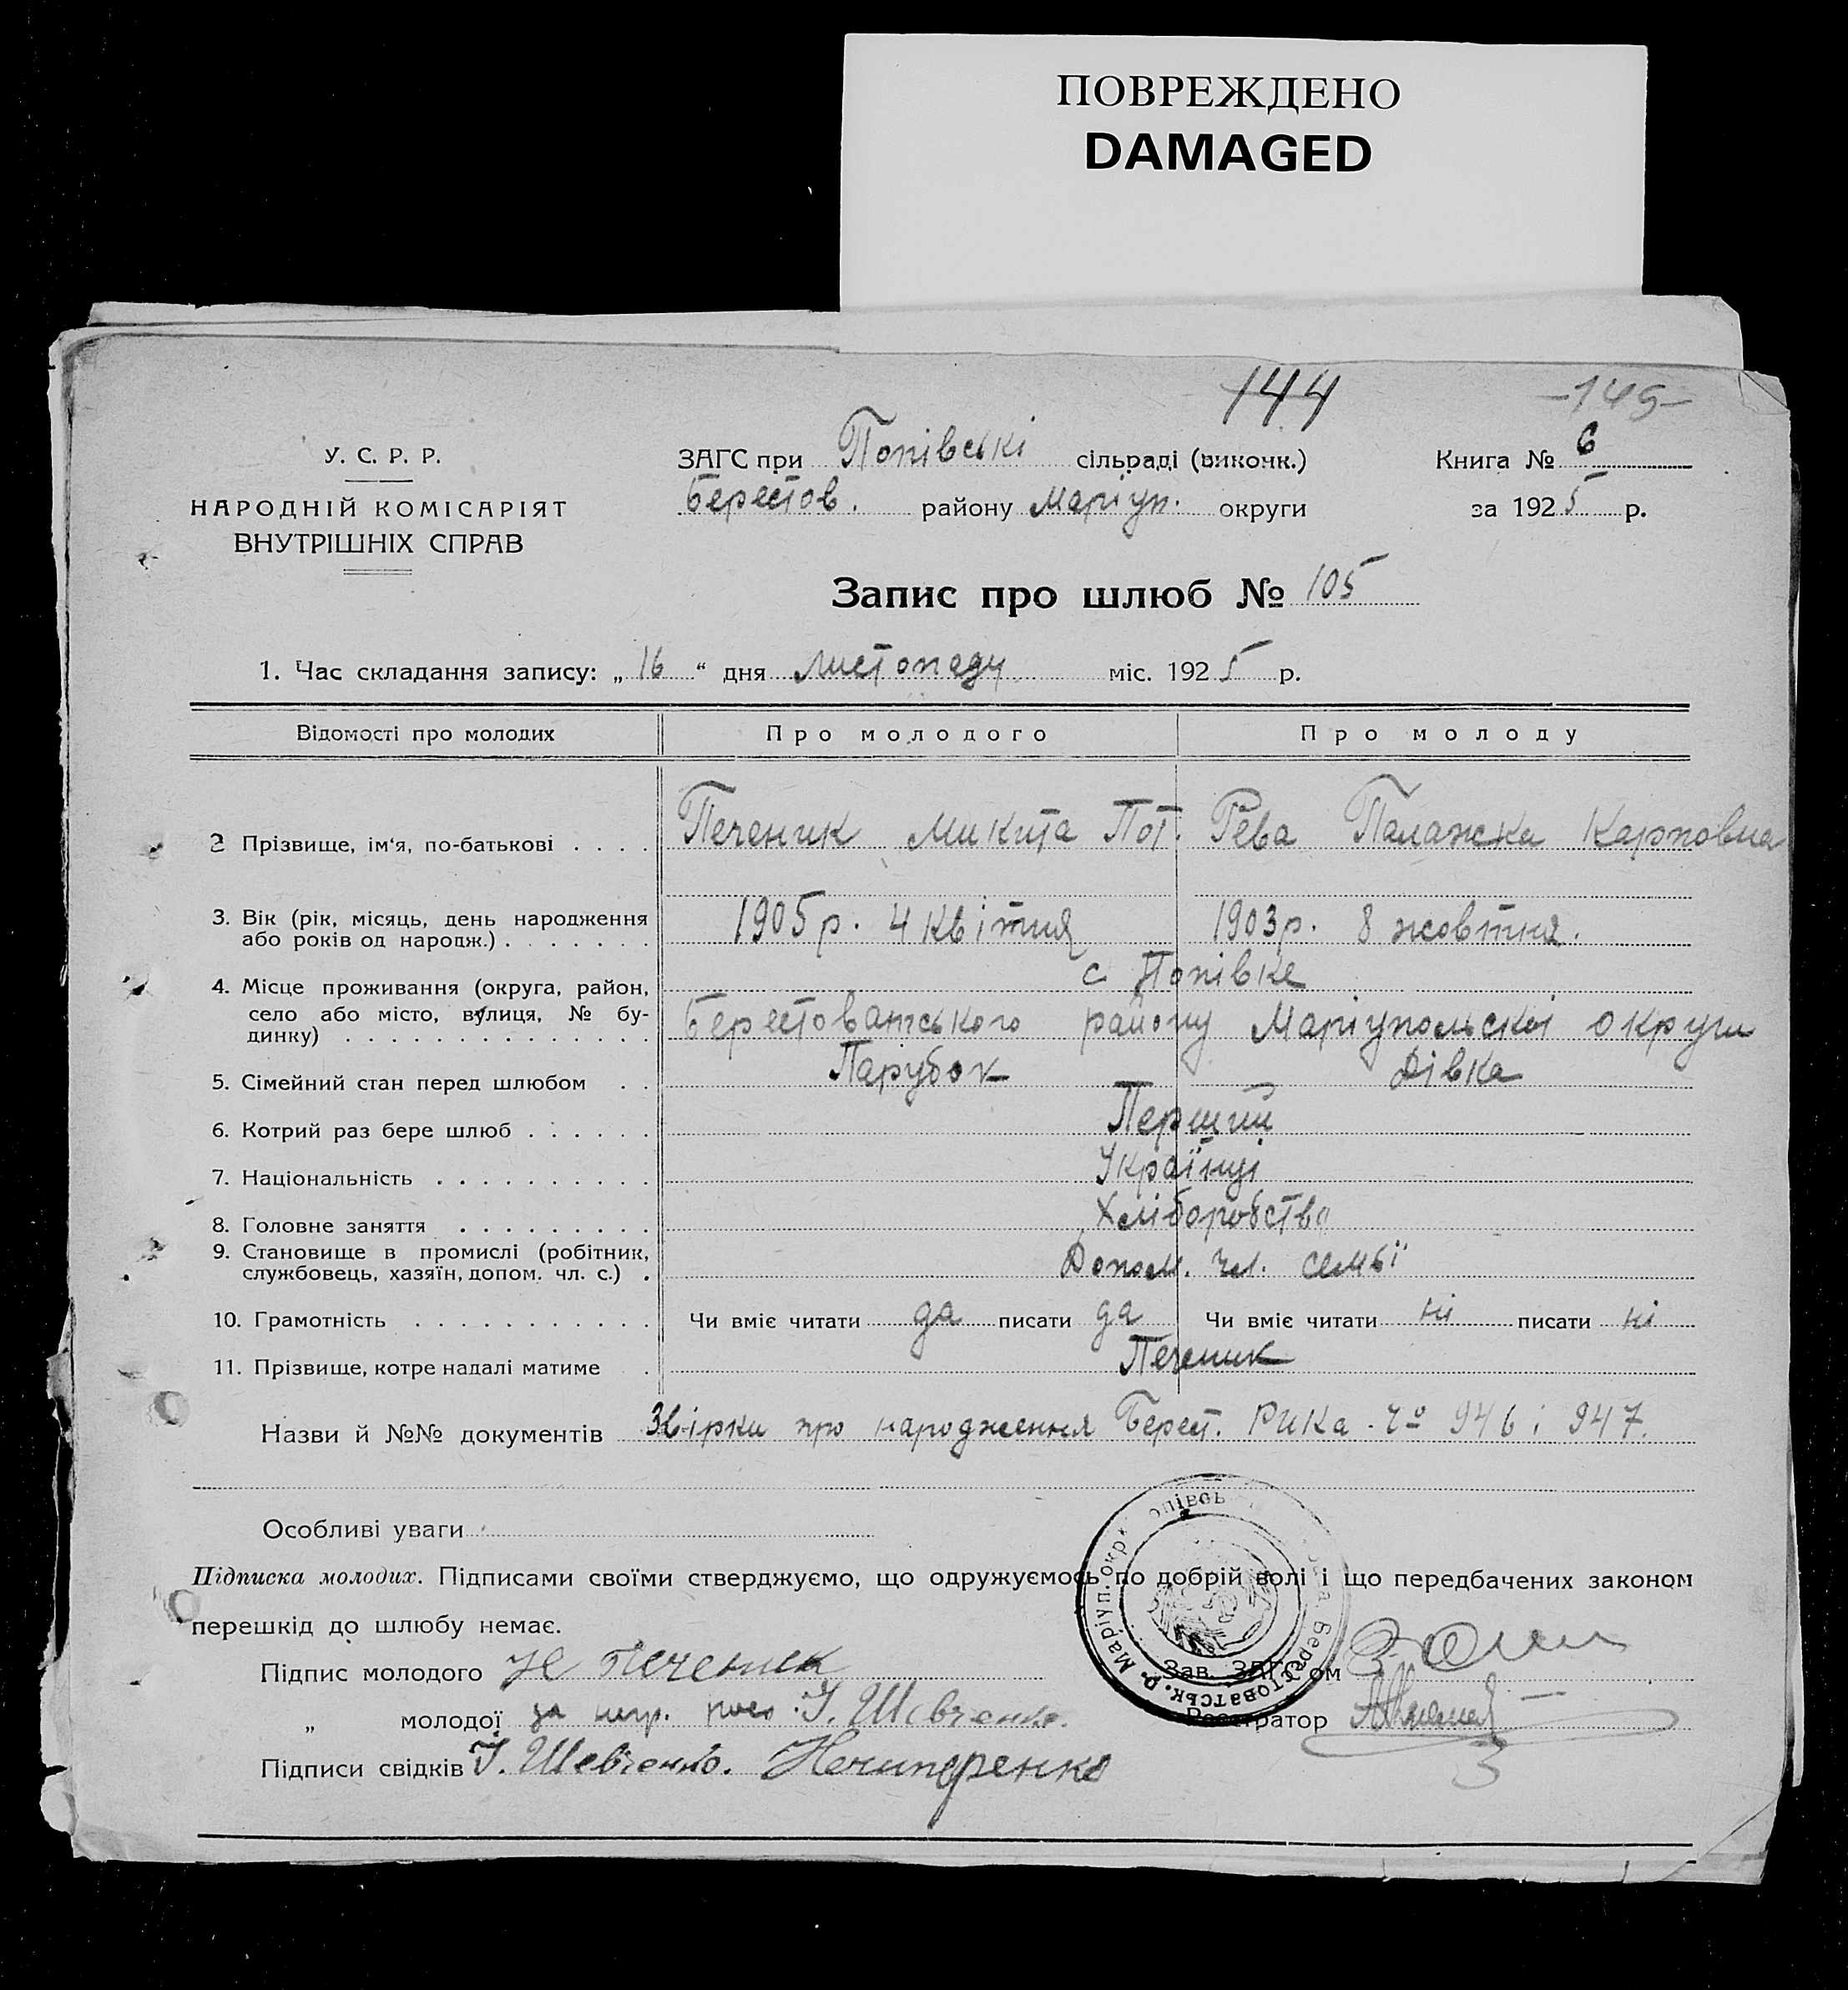 ПОВРЕЖДЕНО
DAMAGED
144
-145-
У. С. Р. Р.
НАРОДНІЙ КОМІСАРІЯТ
ВНУТРІШНІХ СПРАВ
ЗАГС при Попівські сільраді (виконк.)
Берестов. району Маріуп. округи
Книга № 6
за 1925 р.
Запис про шлюб № 105
1. Час складання запису: „16“ дня листопаду міс. 1925 р.
Відомості про молодих Про молодого Про молоду
2 Прізвище, ім'я, по-батькові . . . . Печеник Микита Пот. Рева Палажка Карповна
3. Вік (рік, місяць, день народження
або років од народж.) . . . . . . . 1905 р. 4 квітня 1903 р. 8 жовтня.
с Попівке
4. Місце проживання (округа, район,
село або місто, вулиця, № бу-
динку) . . . . . . . . . . . . . . Берестованського району Маріупольскої округи
5. Сімейний стан перед шлюбом . . Парубок Дівка
6. Котрий раз бере шлюб . . . . . . Перший
7. Національність . . . . . . . . . . Українці
8. Головне заняття . . . . . . . . . Хліборобство
9. Становище в промислі (робітник,
службовець, хазяїн, допом. чл. с.) . Допом. чл. семьї
10. Грамотність . . . . . . . . . . . Чи вміє читати да писати да Чи вміє читати ні писати ні
11. Прізвище, котре надалі матиме . Печеник
Назви й №№ документів Звірки про народження Берест. РИКа 946 і 947.
Особливі уваги
Підписка молодих. Підписами своїми стверджуємо, що одружуємось по добрій волі і що передбачених законом
перешкід до шлюбу немає.
Маріуп. окр. Берестоватськ. р.
Підпис молодого Печеник
Зав. ЗАГС'ом
„ молодої за негр. І. Шевченко.
Реєстратор
Підписи свідків І. Шевченко. Нечипоренко
3